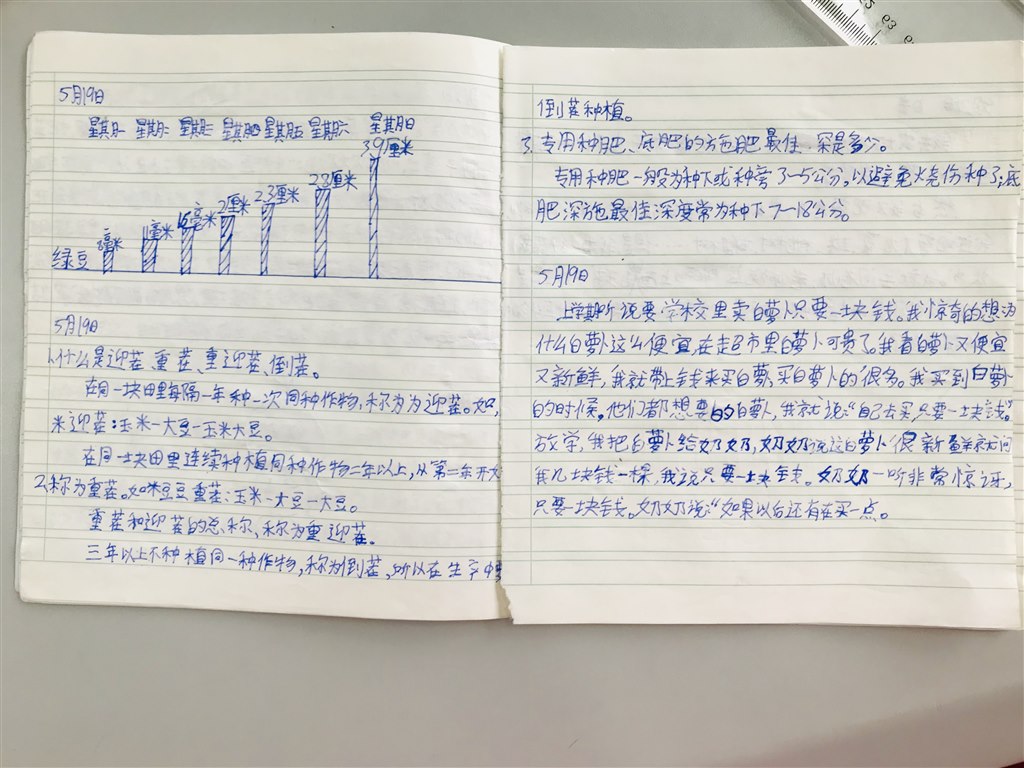 5月19日
星期一 星期二 星期三 星期四 星期五 星期六 星期日
厘米 毫米 2厘米 2.3厘米 2.8厘米 3.9厘米
绿豆
5月19日
1.什么是迎茬、重茬、重迎茬、倒茬。
在同一块田里每隔一年种一次同种作物,称为为迎茬。如,
米迎茬:玉米一大豆一玉米大豆。
在同一块田里连续种植同种作物二年以上,从第二年开
2.称为重茬。如米豆豆重茬:玉米一大豆一大豆。
重茬和迎茬的总称,称为重迎茬。
三年以上不种植同一种作物,称为倒茬,所以在生产中要
倒茬种植。
3.专用种肥、底肥的施肥最佳深是多少。
专用种肥一般为种下或种旁3~5公分,以避免火烧伤种子;底
肥深施最佳深度常为种下7~18公分。
5月19日
上学期听说要学校里卖白萝卜只要一块钱。我惊奇的想为
什么白萝卜这么便宜,在走超市里白萝卜可贵了。我看白萝卜又便宜
又新鲜,我就带上钱来买白萝,买白萝卜的很多。我买到白萝卜
的时候,他们都想要的白萝卜,我就说:“自己去买只要一块钱。”
放学,我把白萝卜给奶奶,奶奶说这白萝卜很新鲜就问
我几块钱一棵,我说只要一块钱。奶奶一听非常惊讶,
只要一块钱。奶奶说:“如果以后还有在买一点。